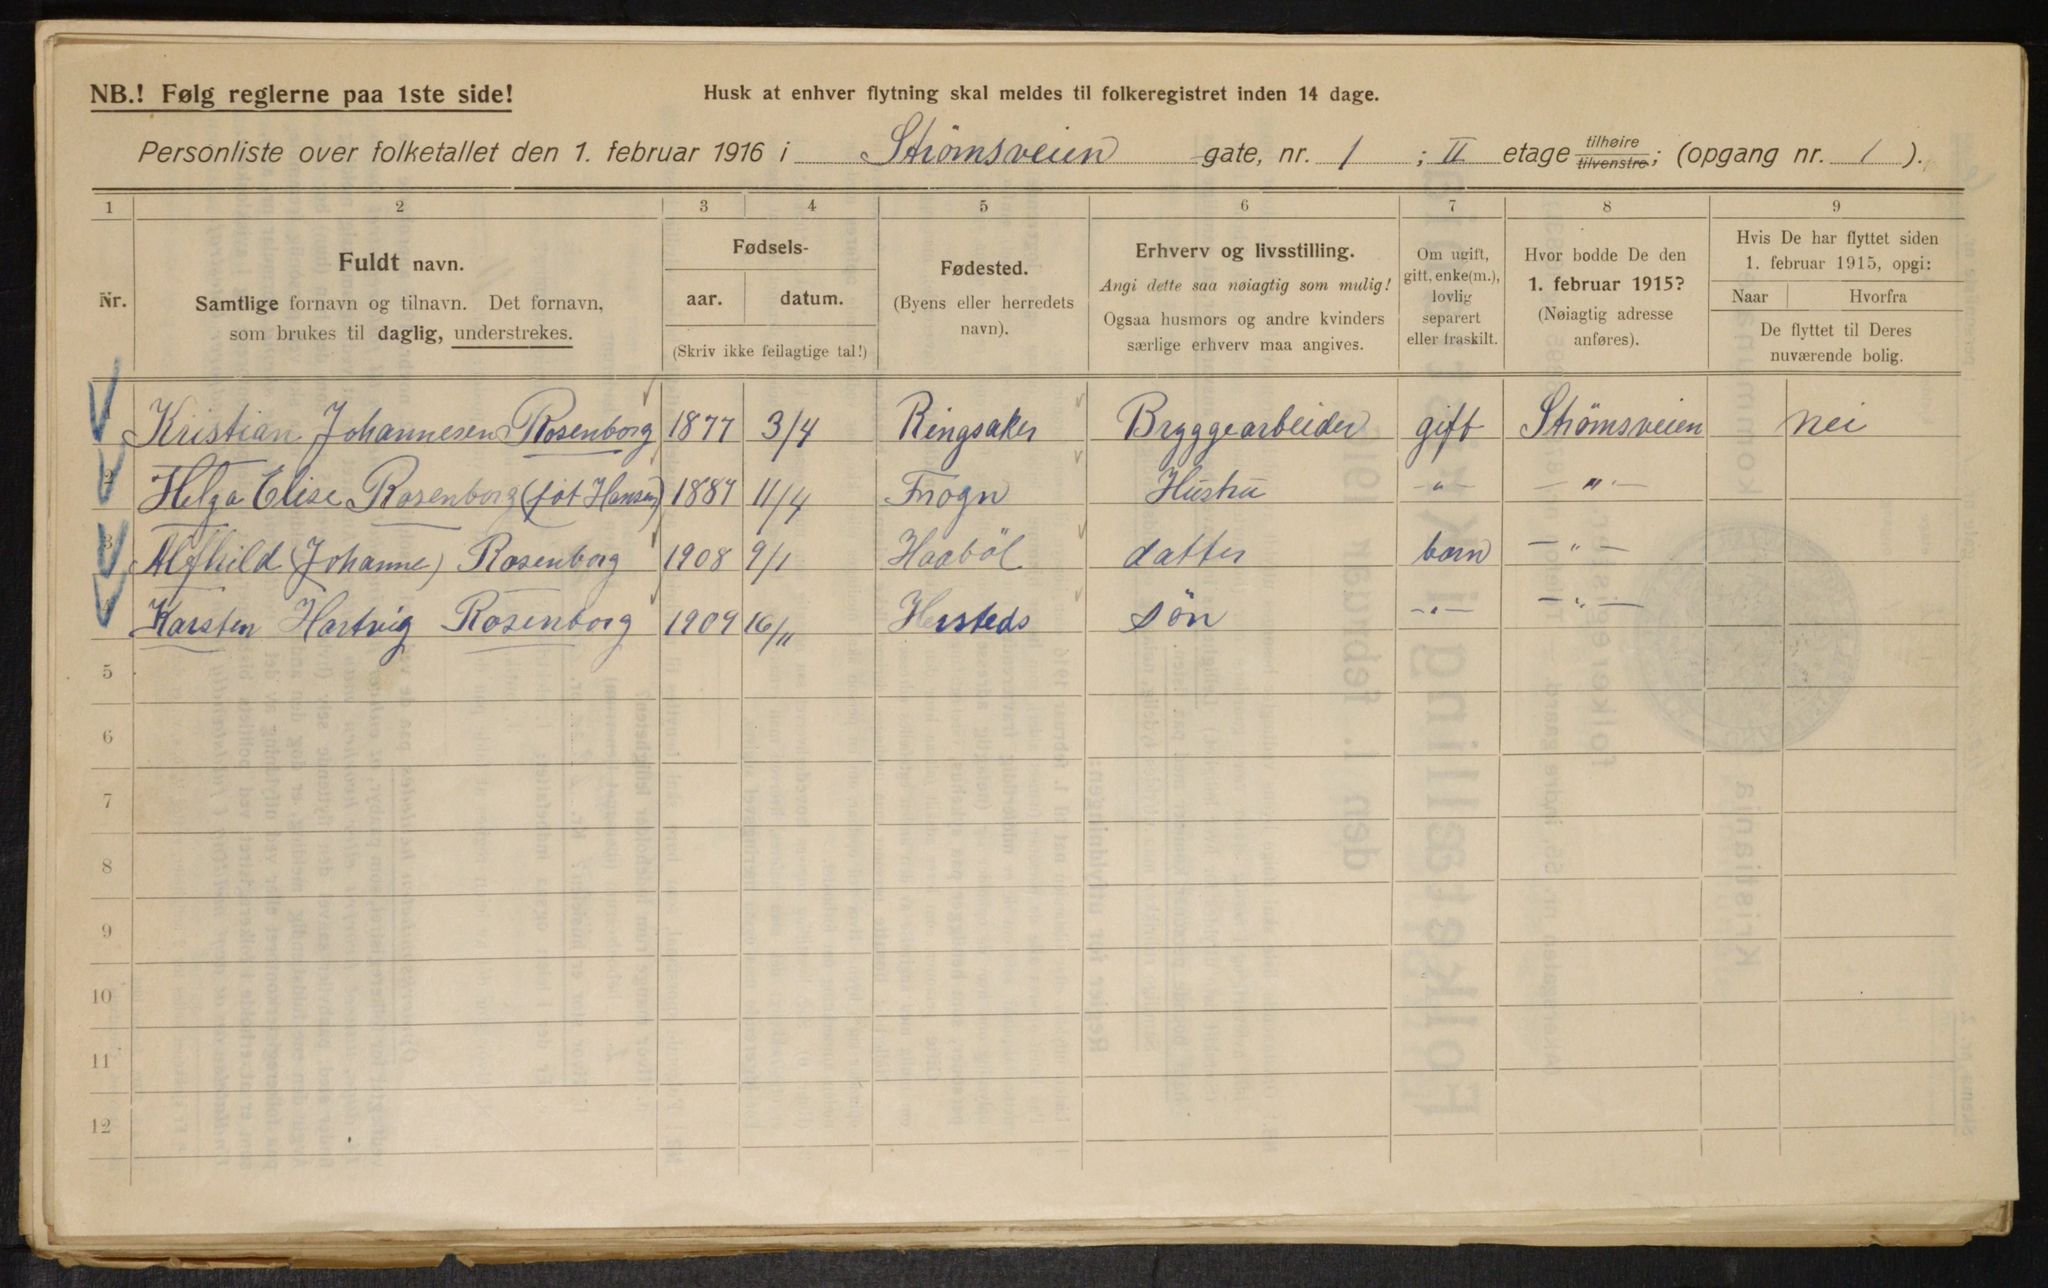 NB.! Følg reglerne paa 1ste side!
Husk at enhver flytning skal meldes til folkeregistret inden 14 dage.
Personliste over folketallet den 1. februar 1916 i Strømsveien gate, nr. 1 ; II etage tilhøire tilvenstre; (opgang nr. 1 ).
1 2 3 4 5 6 7 8 9
Nr.
Fuldt navn.
Samtlige fornavn og tilnavn. Det fornavn,
som brukes til daglig, understrekes.
Fødsels-
aar. datum.
(Skriv ikke feilagtige tal!)
Fødested.
(Byens eller herredets
navn).
Erhverv og livsstilling.
Angi dette saa nøiagtig som mulig!
Ogsaa husmors og andre kvinders
særlige erhverv maa angives.
Om ugift,
gitt, enke(m.),
lovlig
separert
eller fraskilt.
Hvor bodde De den
1. februar 1915?
(Nøiagtig adresse
anføres).
Hvis De har flyttet siden
1. februar 1915, opgi:
Naar Hvorfra
De flyttet til Deres
nuværende bolig.
Kristian Johannesen Rosenborg 1877 3/4 Ringsaker Bryggearbeider gift Strömsveien nei
2 Helga Elise Rosenborg (föt Hansen) 1887 11/4 Frogn Hustru -"- -"-
3 Alfhild (Johanne) Rosenborg 1908 9/1 Haaböl datter barn -"-
Karsten Hartvig Rosenborg 1909 16/11 Hersteds sön -"- -"-
5
6
7
8
9
10
11
12